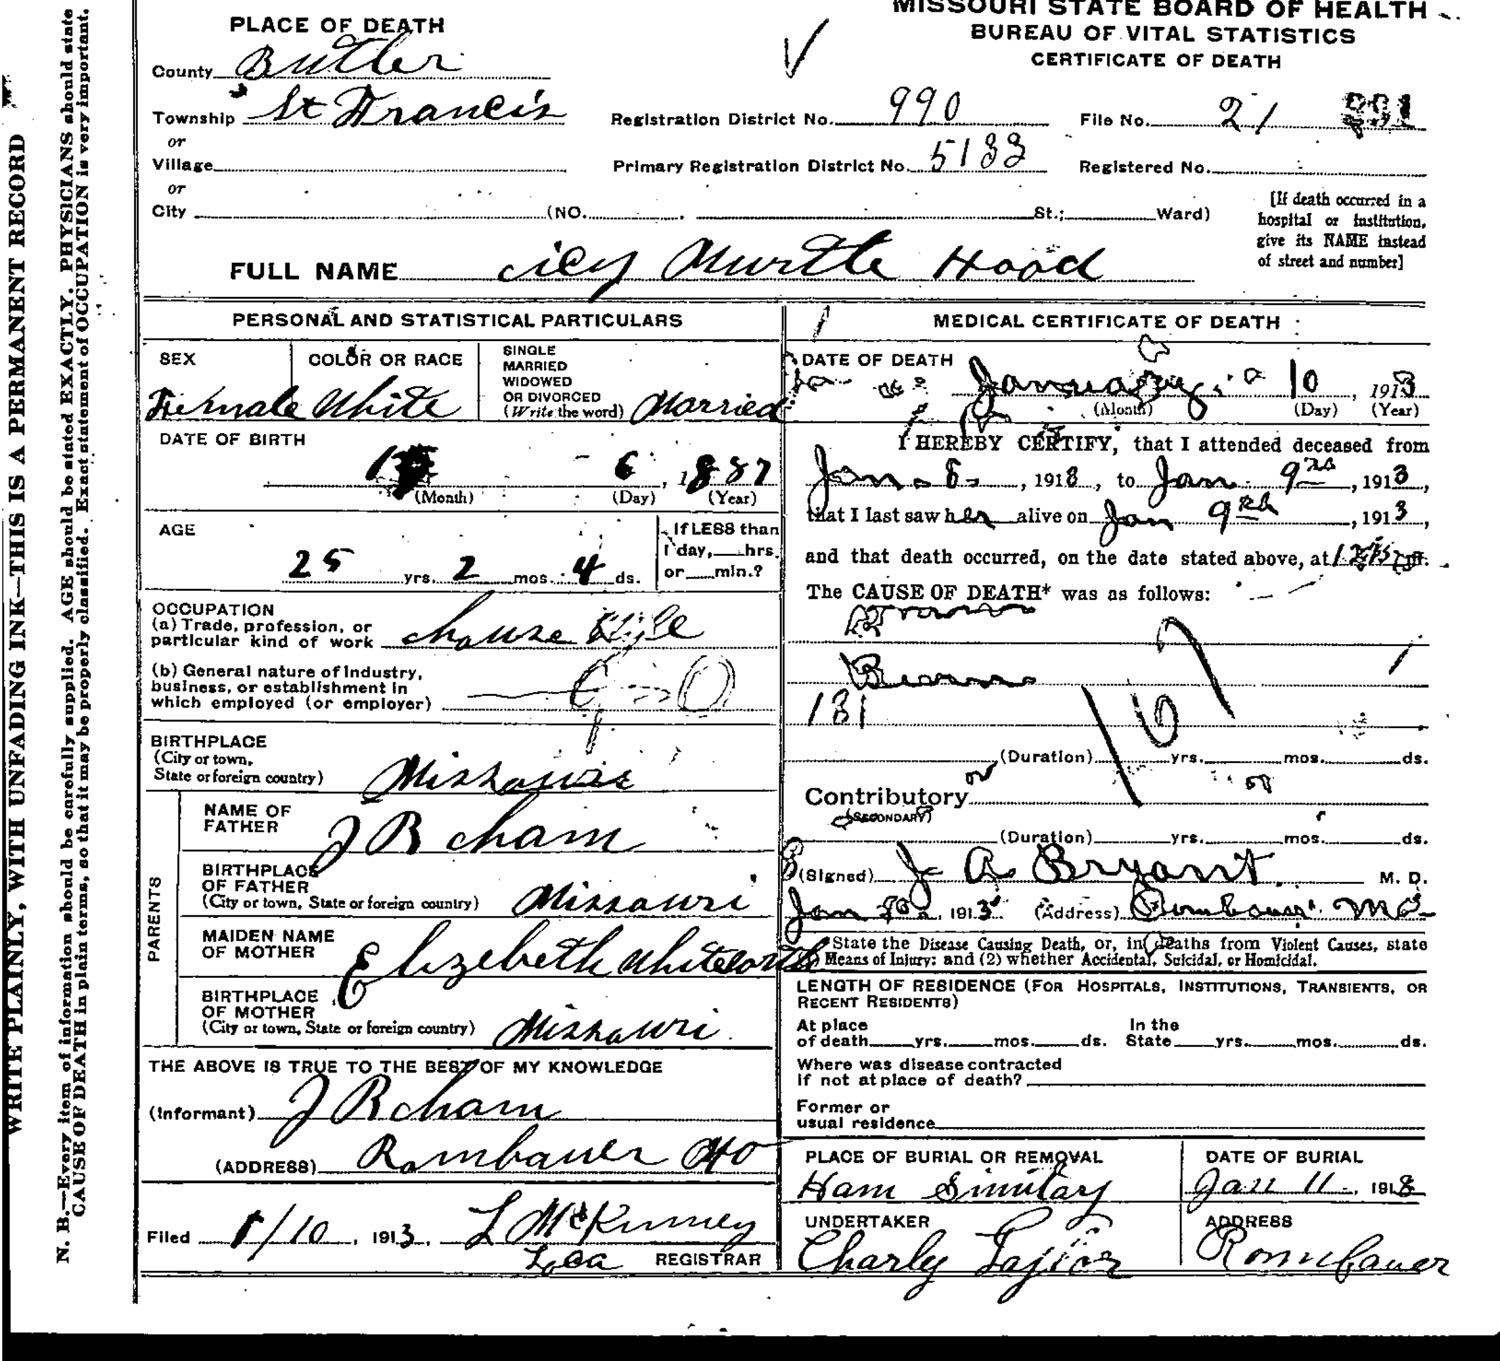 MISSOURI STATE BOARD OF HEALTH
BUREAU OF VITAL STATISTICS
CERTIFICATE OF DEATH
PLACE OF DEATH
County Butler
Township St Francis
or
Village
or
City (NO. St.; Ward)
Registration District No. 990
File No. 21 891
Primary Registration District No. 5133
Registered No.
[If death occurred in a
hospital or institution,
give its NAME instead
of street and number]
FULL NAME Murtle Hood
PERSONAL AND STATISTICAL PARTICULARS
SEX
Female
COLOR OR RACE
White
SINGLE
MARRIED
WIDOWED
OR DIVORCED
(Write the word) Married
DATE OF BIRTH
6, 1887
(Month) (Day) (Year)
AGE
25 yrs. 2 mos. 4 ds.
If LESS than
1 day, hrs.
or min.?
OCCUPATION
(a) Trade, profession, or
particular kind of work
(b) General nature of Industry,
business, or establishment in
which employed (or employer)
BIRTHPLACE
(City or town,
State or foreign country) Missouri
PARENTS
NAME OF
FATHER J B cham
BIRTHPLACE
OF FATHER
(City or town, State or foreign country) Missouri
MAIDEN NAME
OF MOTHER Elizebeth Whiteworth
BIRTHPLACE
OF MOTHER
(City or town, State or foreign country) Missouri
THE ABOVE IS TRUE TO THE BEST OF MY KNOWLEDGE
(Informant) J B cham
(ADDRESS) Rombauer Mo
Filed 1/10, 1913, L McKinney
REGISTRAR
MEDICAL CERTIFICATE OF DEATH
DATE OF DEATH
January 10 1913
(Month) (Day) (Year)
I HEREBY CERTIFY, that I attended deceased from
Jan. 8, 1913, to Jan. 9, 1913,
that I last saw her alive on Jan 9, 1913,
and that death occurred, on the date stated above, at m.
The CAUSE OF DEATH* was as follows:
181
167
(Duration) yrs. mos. ds.
Contributory
(SECONDARY)
(Duration) yrs. mos. ds.
(Signed) J A Bryant M. D.
Jan 10, 1913 (Address) Rombauer Mo
State the Disease Causing Death, or, in deaths from Violent Causes, state
(1) Means of Injury; and (2) whether Accidental, Suicidal, or Homicidal.
LENGTH OF RESIDENCE (FOR HOSPITALS, INSTITUTIONS, TRANSIENTS, OR
RECENT RESIDENTS)
At place
of death yrs. mos. ds.
In the
State yrs. mos. ds.
Where was disease contracted
if not at place of death?
Former or
usual residence
PLACE OF BURIAL OR REMOVAL
Ham Simitary
DATE OF BURIAL
Jan 11, 1913
UNDERTAKER
Charly Taylor
ADDRESS
Rombauer
WRITE PLAINLY, WITH UNFADING INK—THIS IS A PERMANENT RECORD
N. B.—Every item of information should be carefully supplied. AGE should be stated EXACTLY. PHYSICIANS should state
CAUSE OF DEATH in plain terms, so that it may be properly classified. Exact statement of OCCUPATION is very important.